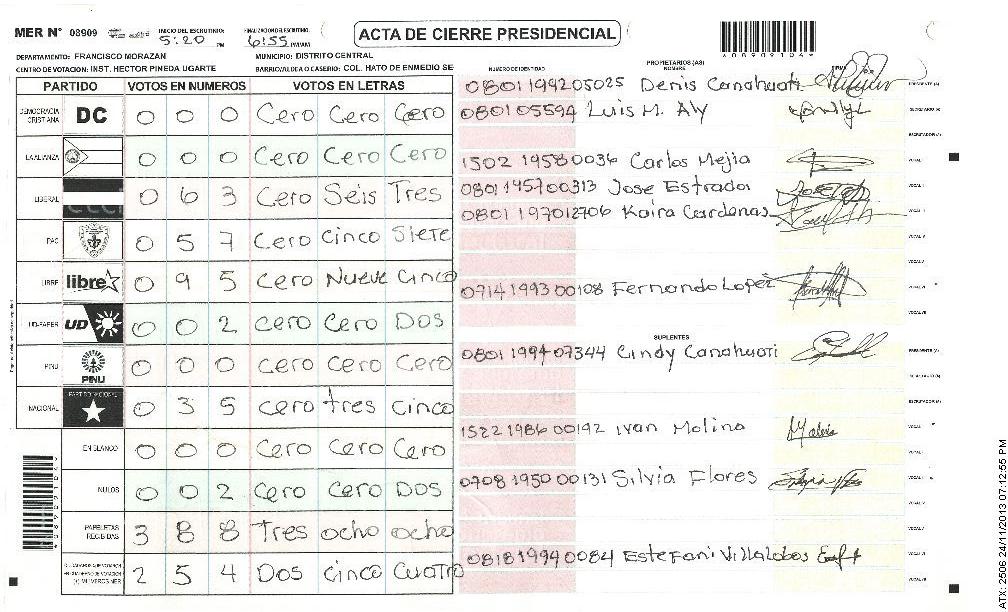 MER N° 08909 INICIO DEL ESCRUTINIO: 5:20 PM FINALIZACION DEL ESCRUTINIO: 6:55 PM/AM
ACTA DE CIERRE PRESIDENCIAL
DEPARTAMENTO: FRANCISCO MORAZAN MUNICIPIO: DISTRITO CENTRAL
CENTRO DE VOTACION: INST. HECTOR PINEDA UGARTE BARRIO/ALDEA O CASERIO: COL. HATO DE ENMEDIO SE
PARTIDO VOTOS EN NUMEROS VOTOS EN LETRAS
DEMOCRACIA CRISTIANA DC 0 0 0 Cero Cero Cero
LA ALIANZA 0 0 0 Cero Cero Cero
LIBERAL 0 6 3 Cero Seis Tres
PAC 0 5 7 Cero Cinco Siete
LIBRE libre 0 9 5 Cero Nueve Cinco
UD-FAPER UD 0 0 2 Cero Cero Dos
PINU PINU 0 0 0 Cero Cero Cero
NACIONAL PARTIDO NACIONAL 0 3 5 Cero tres Cinco
EN BLANCO 0 0 0 Cero Cero Cero
NULOS 0 0 2 Cero Cero Dos
PAPELETAS RECIBIDAS 3 8 8 Tres ocho ocho
2 5 4 Dos Cinco Cuatro
NUMERO DE IDENTIDAD PROPIETARIOS (AS) NOMBRE
0801199205025 Denis Canahuati PRESIDENTE (A)
080105594 Luis M. Aly SECRETARIO (A)
ESCRUTADOR (A)
1502 19580036 Carlos Mejia VOCAL I
0801 195700313 Jose Estrada
0801 197012706 Kaira Cardenas
0714 1993 00108 Fernando Lopez
SUPLENTES
0801 1994 07344 Cindy Canahuati PRESIDENTE (A)
ESCRUTADOR (A)
1522 1986 00192 Ivan Molina
0708 1950 00131 Silvia Flores
0818 1994 0084 Estefani Villalobos
ATX: 2506 24/11/2013 07:12:55 PM